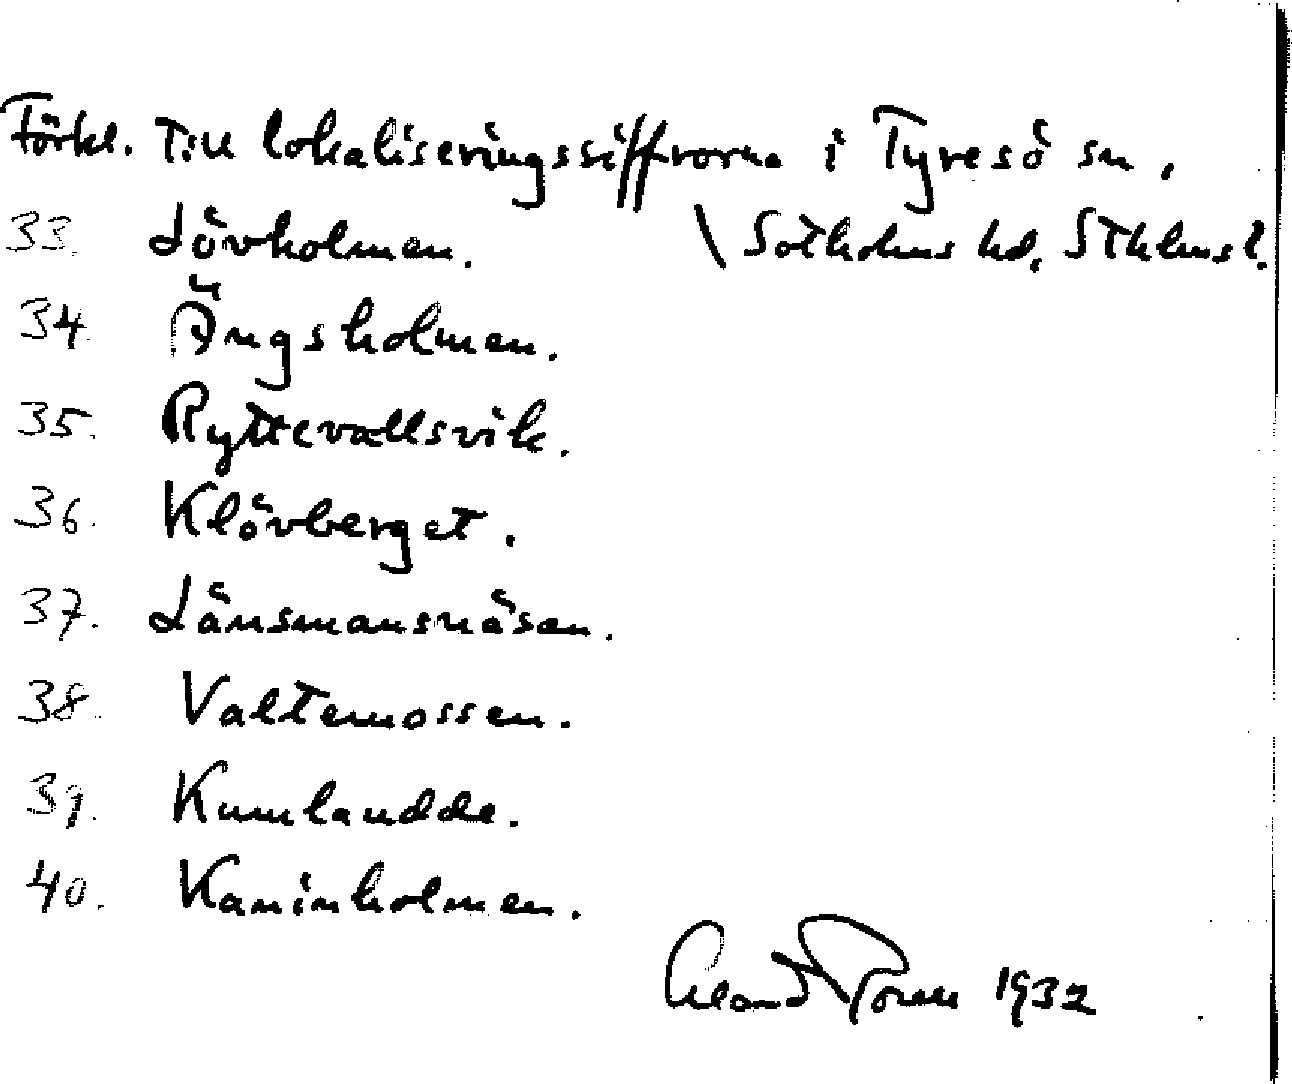 Förkl. till lokaliseringssiffrorna i Tyresö sn.
33. Lövholmen. \ Sotholms hd, Sthlms l.
34. Ängsholmen.
35. Ryttevallsvik.
36. Klövberget.
37. Länsmansnäsan.
38. Valtemossen.
39. Kumlaudde.
40. Kaninholmen.
1932